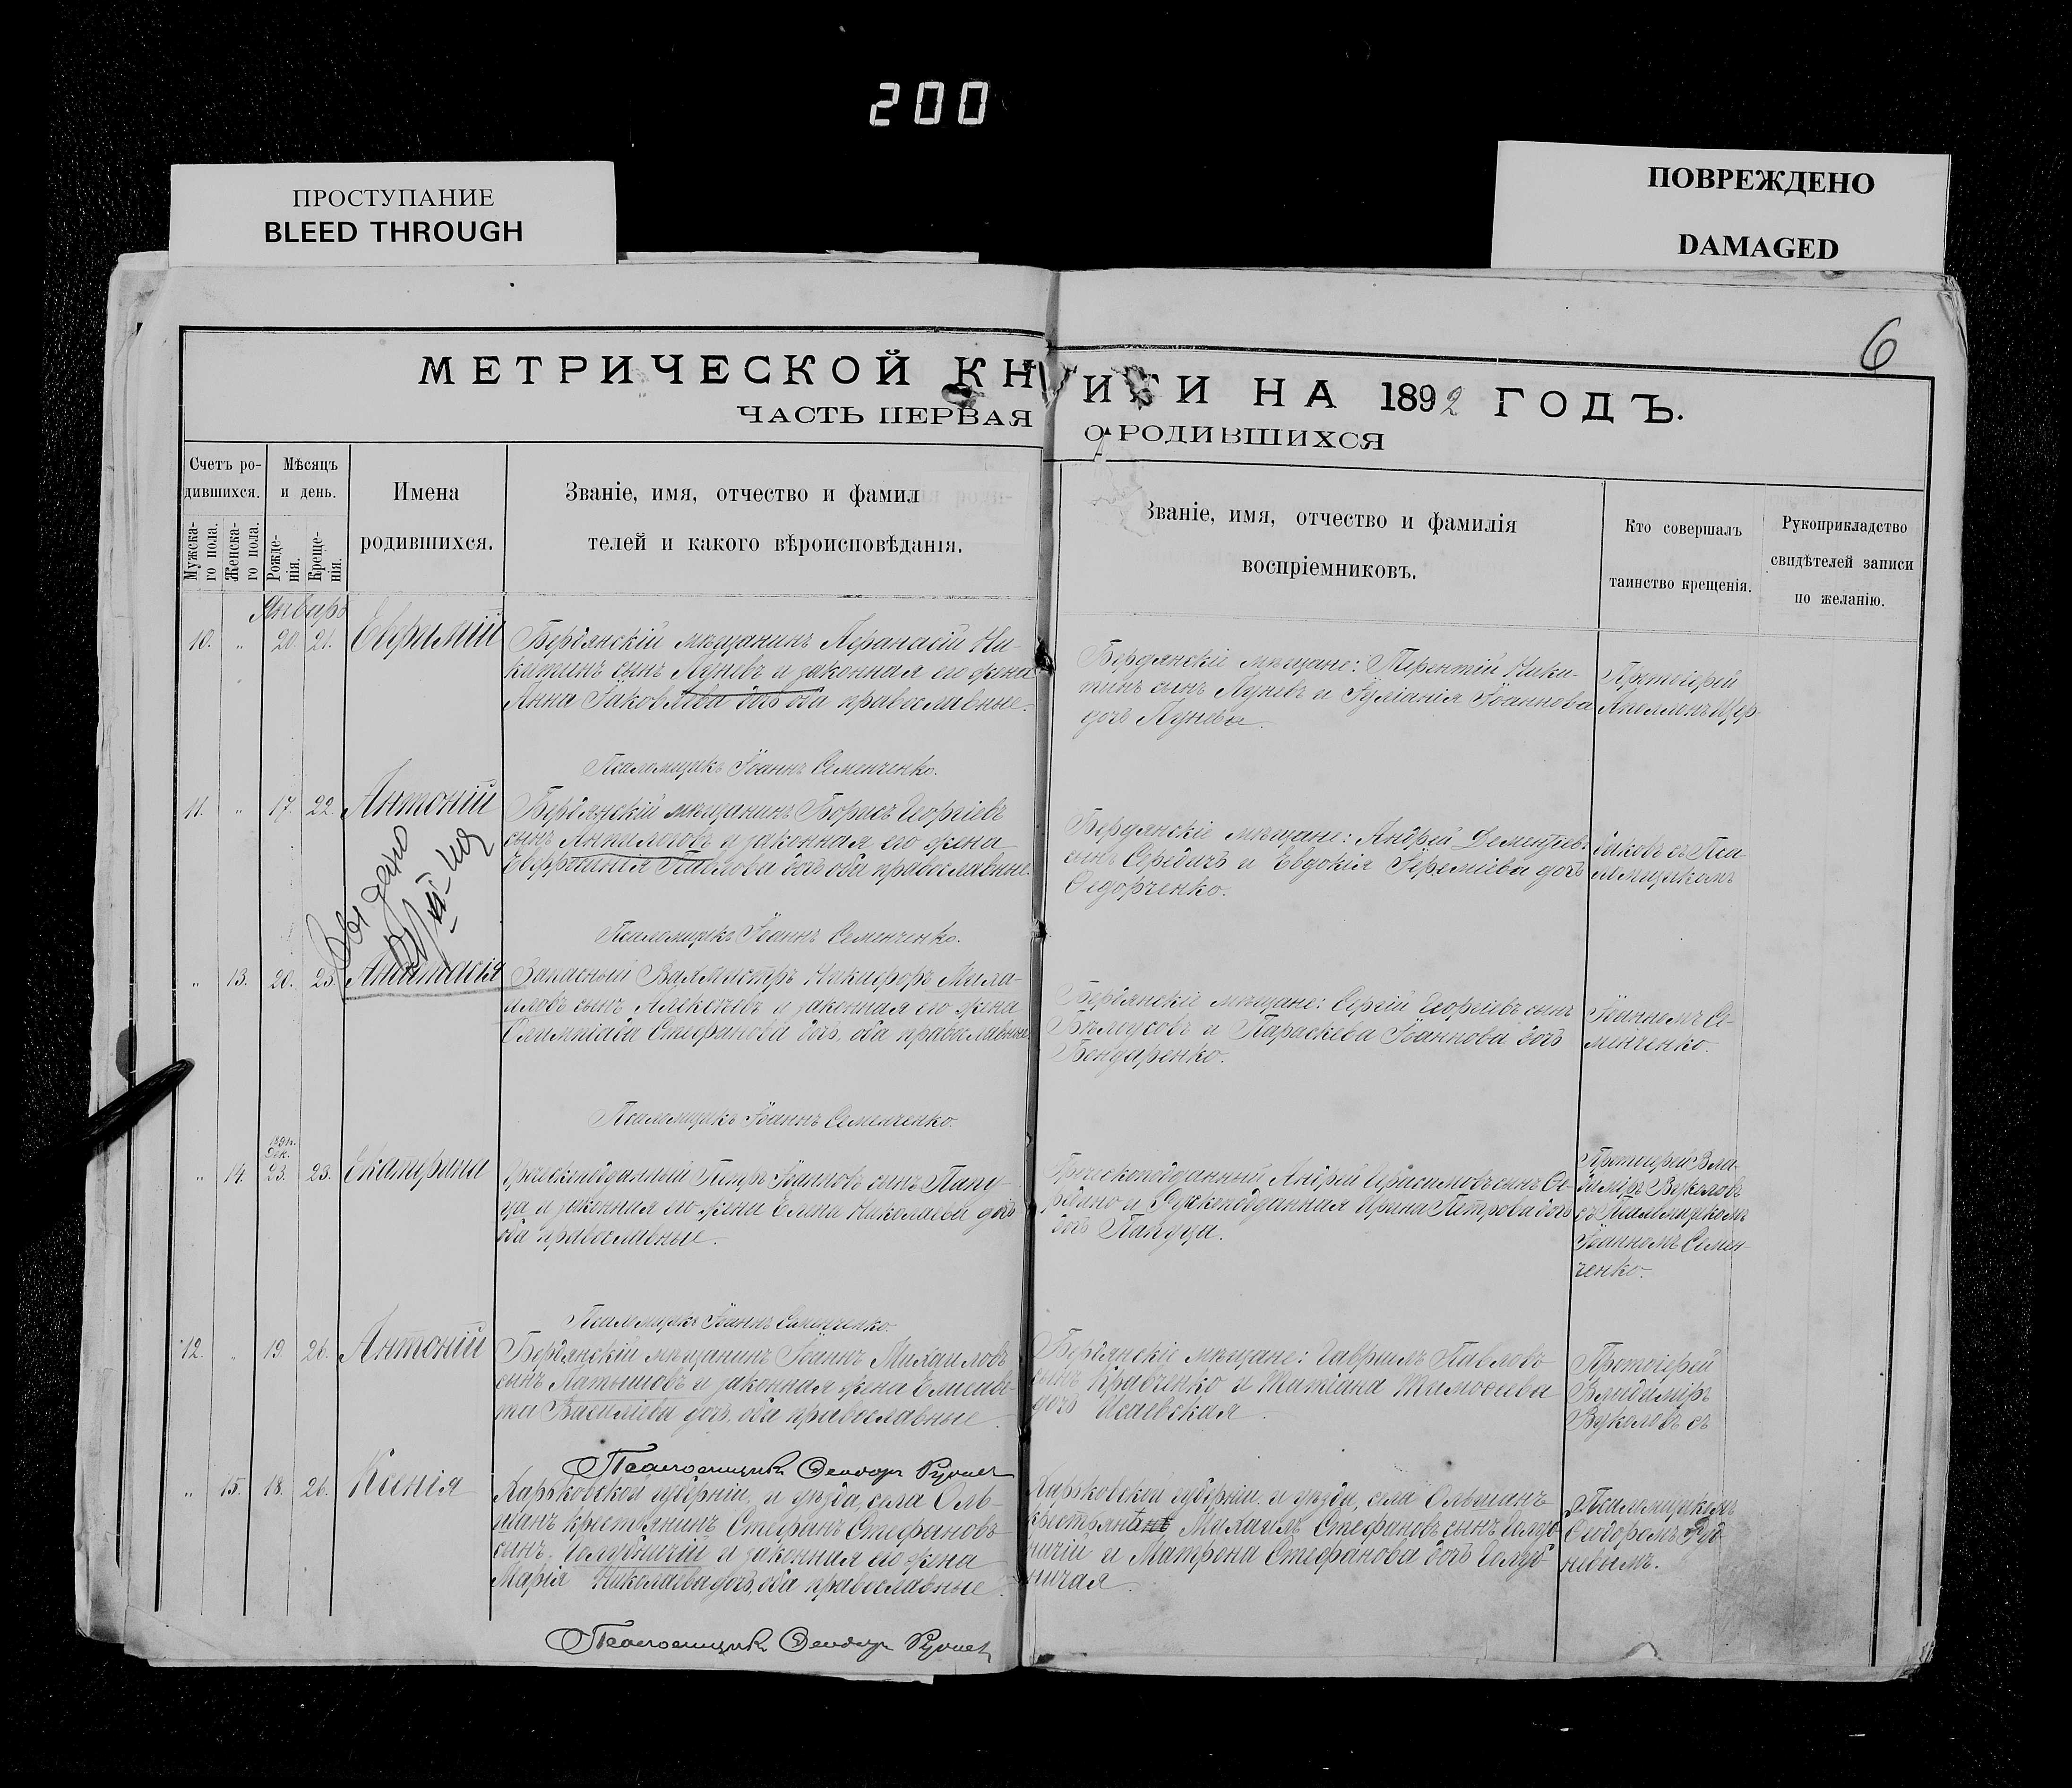 200
ПРОСТУПАНИЕ
BLEED THROUGH
ПОВРЕЖДЕНО
DAMAGED
6
МЕТРИЧЕСКОЙ КНИГИ НА 1892 ГОДЪ.
ЧАСТЬ ПЕРВАЯ О РОДИВШИХСЯ
Счетъ ро-
дившихся.
Мужска-
го пола.
Женска-
го пола.
Мѣсяцъ
и день.
Рожде-
нія.
Креще-
нія.
Имена
родившихся.
Званіе, имя, отчество и фамил
телей и какого вѣроисповѣданія.
Званіе, имя, отчество и фамилія
воспріемниковъ.
Кто совершалъ
таинство крещенія.
Рукоприкладство
свидѣтелей записи
по желанію.
Январь
10. " 20. 21. Евфимій
Бердянскій мѣщанинъ Афанасій Ни-
китинъ сынъ Луневъ и законная его жена
Анна Іаковлева дочь оба православные.
Бердянскіе мѣщане: Терентій Ники-
тинъ сынъ Луневъ и Іуліанія Іоаннова
дочь Лунева.
Протоіерей
Псаломщикъ Іоаннъ Семенченко.
11. " 17. 22. Антоній
Бердянскій мѣщанинъ Борисъ Георгіевъ
сынъ Анпилоговъ и законная его жена
Евфросинія Павлова дочь оба православные.
Бердянскіе мѣщане: Андрей Дементіевъ
сынъ Середичъ и Евдокія Іереміева дочь
Федорченко.
съ Пса-
ломщикомъ
Выдано
Псаломщикъ Іоаннъ Семенченко.
" 13. 20. 23. Анастасія
Запасный Вахмистръ Никифоръ Миха-
иловъ сынъ Алексѣевъ и законная его жена
Олимпіада Стефанова дочь, оба православные
Бердянскіе мѣщане: Сергій Георгіевъ сынъ
Бѣлоусовъ и Параскева Іоаннова дочь
Бондаренко.
Іоанномъ Се-
менченко.
Псаломщикъ Іоаннъ Семенченко.
1891 г.
Дек.
" 14. 23. 23. Екатерина
Греческоподданный Петръ сынъ Папу-
ца и законная его жена Елена Николаева дочь
оба православные.
Греческоподданный Андрей сынъ
и Ирина Петрова дочь
дочь Папуца.
Протоіерей Вла-
диміръ Вуколовъ
съ Псаломщикомъ
Іоанномъ Семен-
ченко.
Псаломщикъ Іоаннъ Семенченко.
12. " 19 26. Антоній
Бердянскій мѣщанинъ Іоаннъ Михаиловъ
сынъ Латышовъ и законная жена Елисаве-
та Василіева дочь, оба православные.
Бердянскіе мѣщане: Гавріилъ Павловъ
сынъ Кравченко и Татіана Тимофеева
дочь Исаевская.
Протоіерей
Владиміръ
Вуколовъ съ
Псаломщикъ Феодоръ
" 15. 18. 26. Ксенія
Харьковской губерніи, и уѣзда, села Оль-
шанъ крестьянинъ Стефанъ Стефановъ
сынъ Голубничій и законная его жена
Марія Николаева дочь, оба православные.
Харьковской губерніи и уѣзда, села Ольшанъ
Михаилъ Стефановъ сынъ Голуб-
ничій и Матрона Стефанова дочь Голуб-
ничая.
Псаломщикомъ
Псаломщикъ Феодоръ